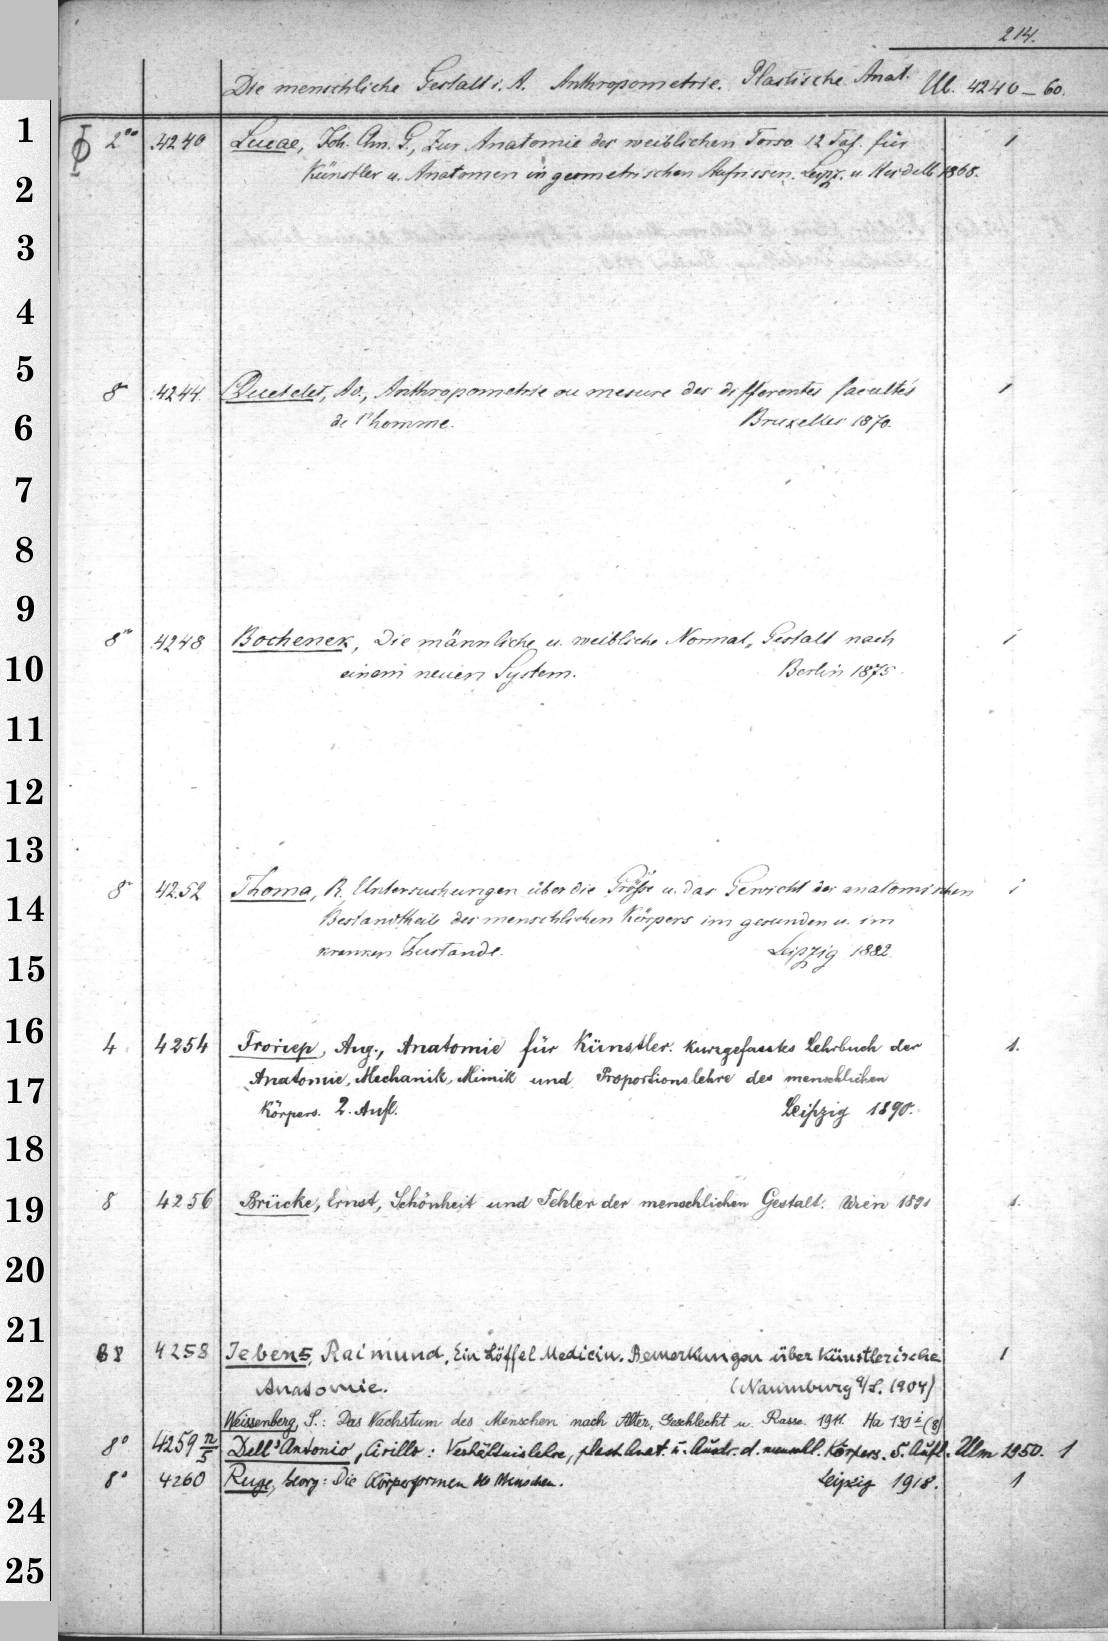 214.
Die menschliche Gestalt i. A. Anthropometrie. Plastische Anat. Ul. 4240–60.
1
2°° 4240 Lucae, Joh. Chn. G., Zur Anatomie des weiblichen Torso 12 Taf. für 1
2
Künstler u. Anatomen in geometrischen Aufrissen. Leipz. u. Heidelb 1868.
3
4
5
8° 4244 Quetelet, Ad., Anthropometrie ou mesure des differentes facultés 1
6
de l'homme. Bruxelles 1870.
7
8
9
8° 4248 Bochenek, Die männliche u. weibliche Normal-Gestalt nach 1
10
einem neuen System. Berlin 1875.
11
12
13
8° 4252 Thoma, R. Untersuchungen über die Größe u. das Gewicht der anatomischen 1
14
Bestandtheile des menschlichen Körpers im gesunden u. im
kranken Zustande. Leipzig 1882.
15
16
4 4254 Froriep, Aug., Anatomie für Künstler. Kurzgefasstes Lehrbuch der 1.
17
Anatomie, Mechanik, Mimik und Proportionslehre des menschlichen
Körpers. 2. Aufl. Leipzig 1890.
18
19
8 4256 Brücke, Ernst, Schönheit und Fehler der menschlichen Gestalt. Wien 1891 1.
20
21
8 4258 Jebens, Raimund, Ein Löffel Medicin. Bemerkungen über künstlerische 1
22
Anatomie. (Naumburg a/S. 1904)
Weissenberg, S.: Das Wachstum des Menschen nach Alter, Geschlecht u. Rasse. 1911. Ha 130 i (8)
23
8° 4259 n/5 Dell'Antonio, Cirillo: Verhältnislehre, plast. Anat. u. Ausdr. d. menschl. Körpers. 5. Aufl. Ulm 1950. 1
8° 4260 Ruge, Georg: Die Körperformen des Menschen. Leipzig 1918. 1
24
25